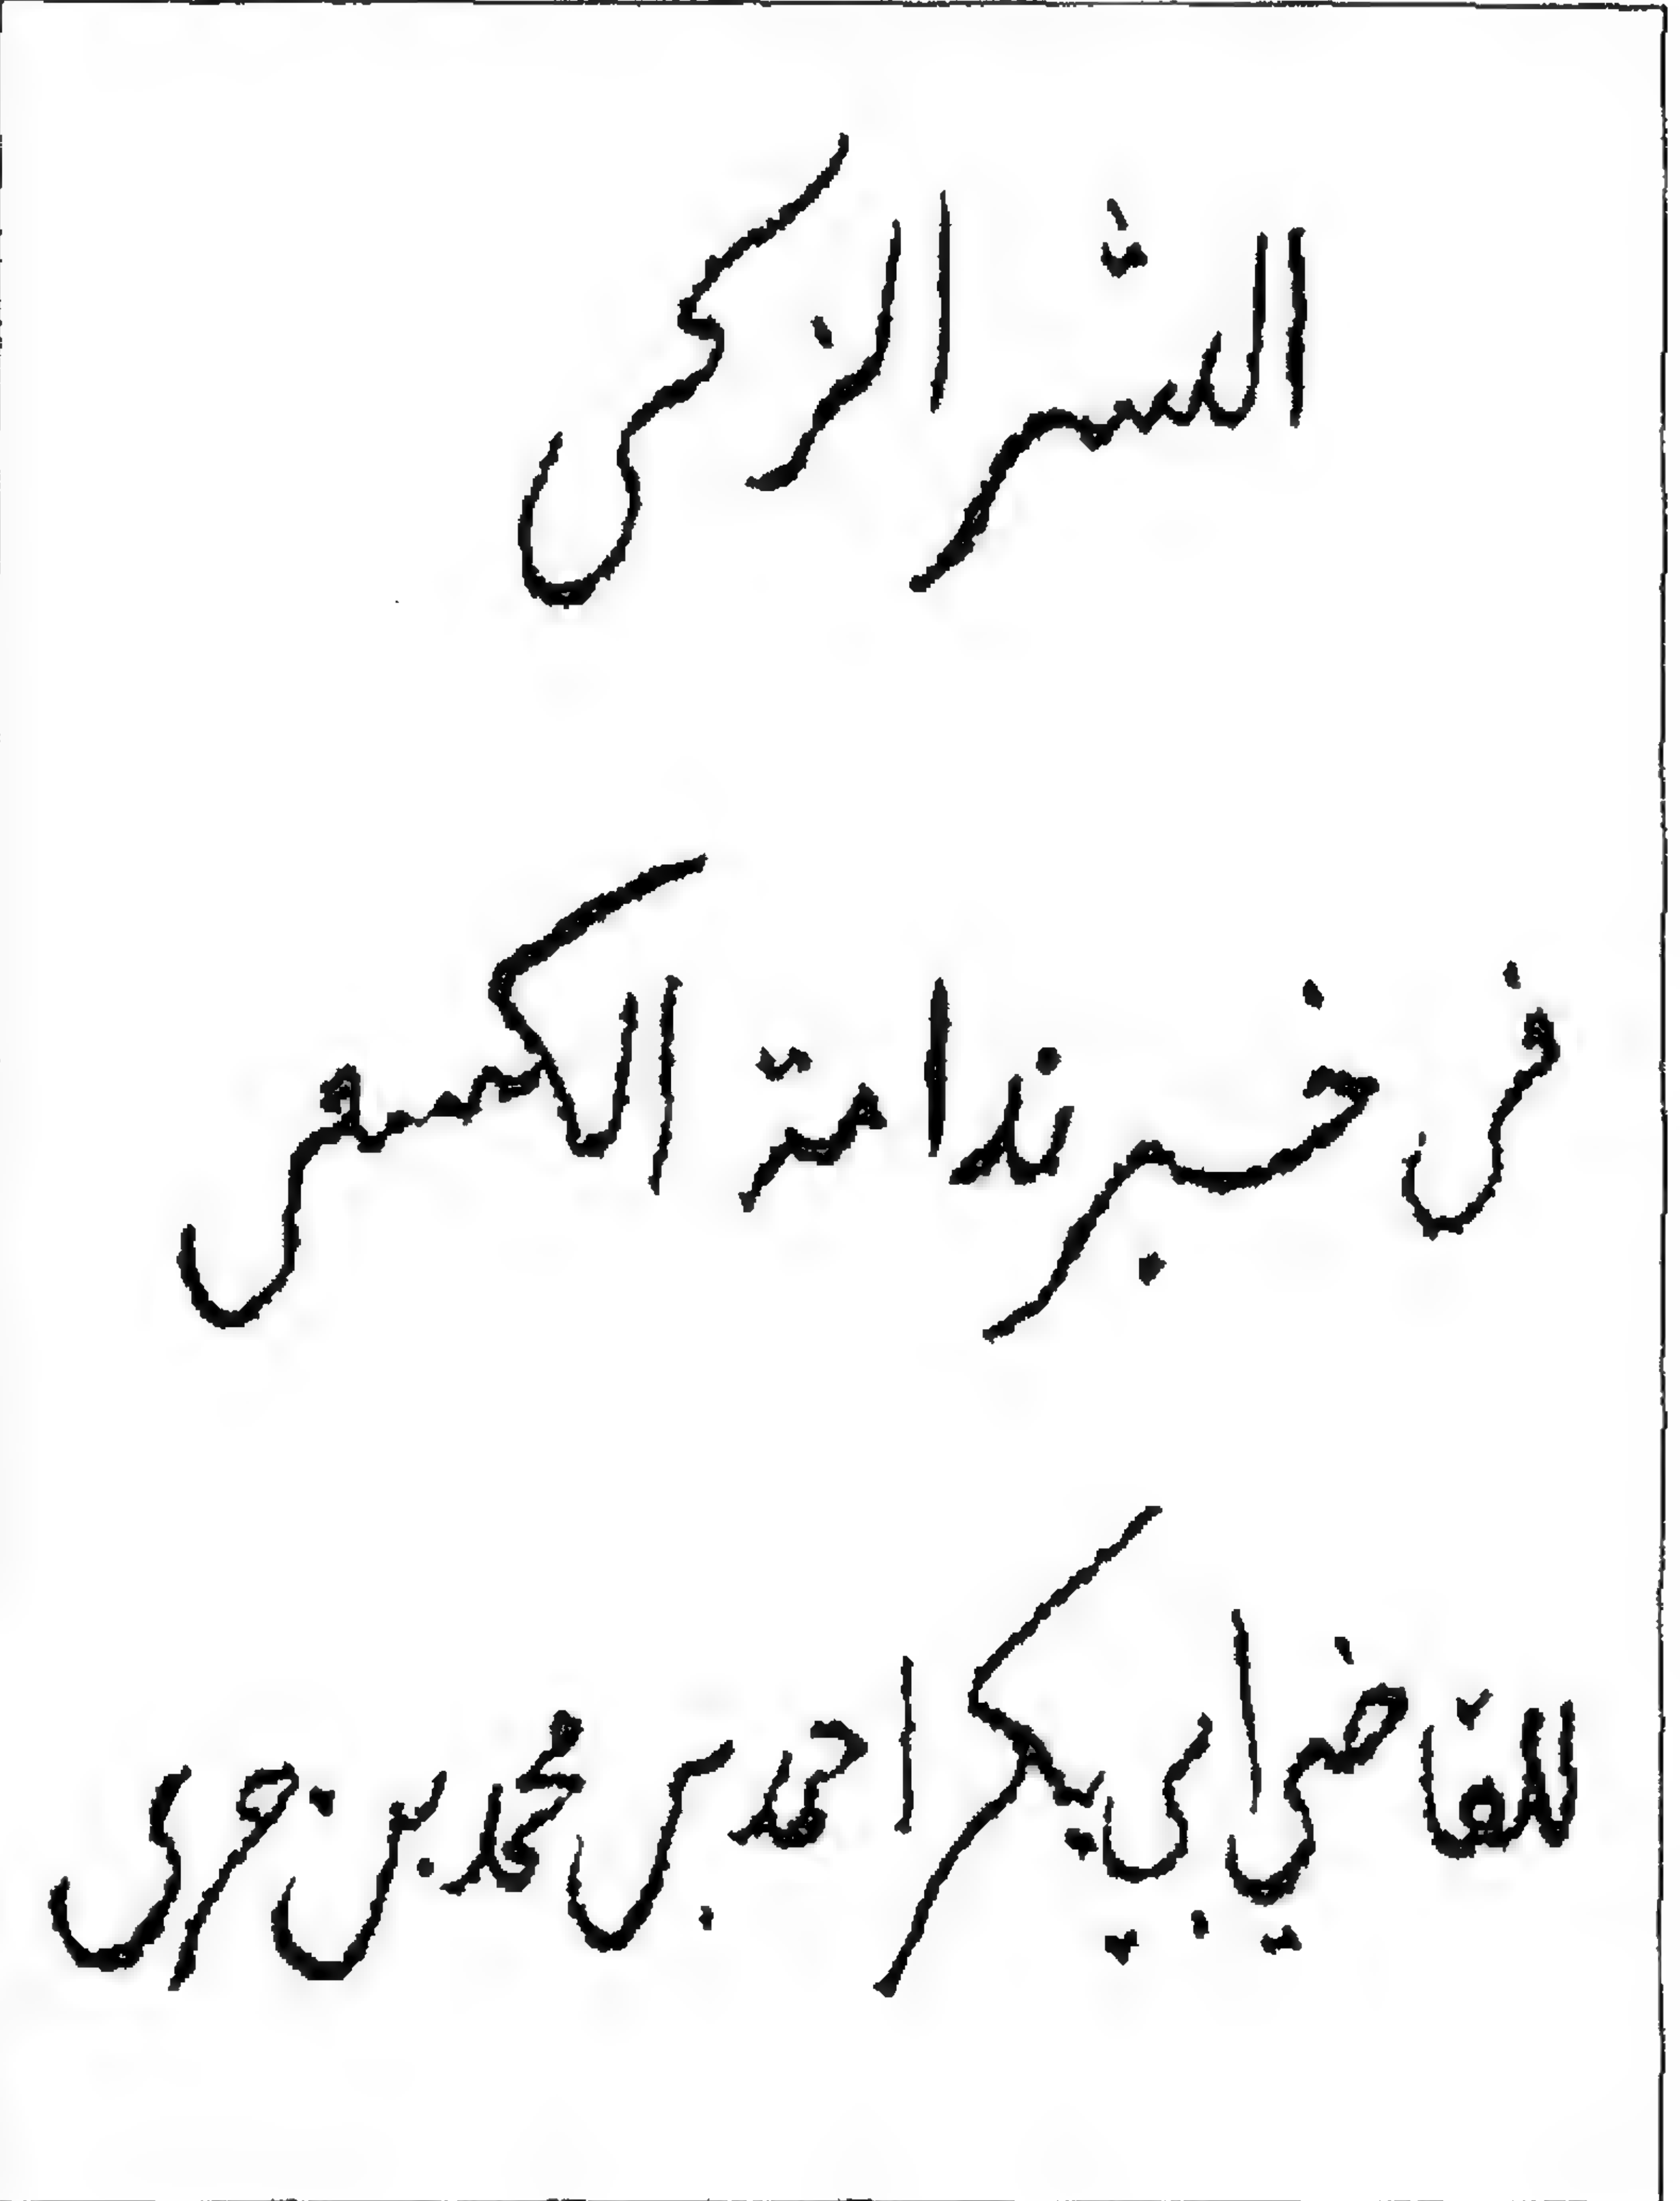 النشر الزكى
فى خبر ندامة الكسعى
للقاضي ابي بكر احمد بن محمد بن جزى